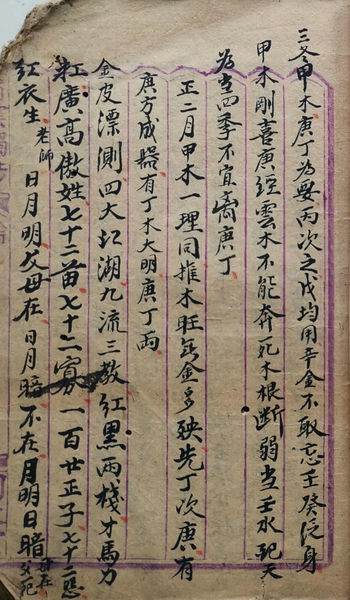 三冬甲木庚丁为要丙次之戊均用辛金不取忘壬癸泛身
甲木刚喜庚经云木不能奔死木根断弱当壬水犯天
为当四季不宜离庚丁
正二月甲木一理同推木旺金多殃先丁次庚有
庚方成器有丁木大明庚丁両
金皮漂测四大江湖九流三教红黑両栈才马力
红广高傲姓七十二苗七十二寡一百廿正子七十二
红衣生老師日月明父母在日月暗不在月明日暗母在父死